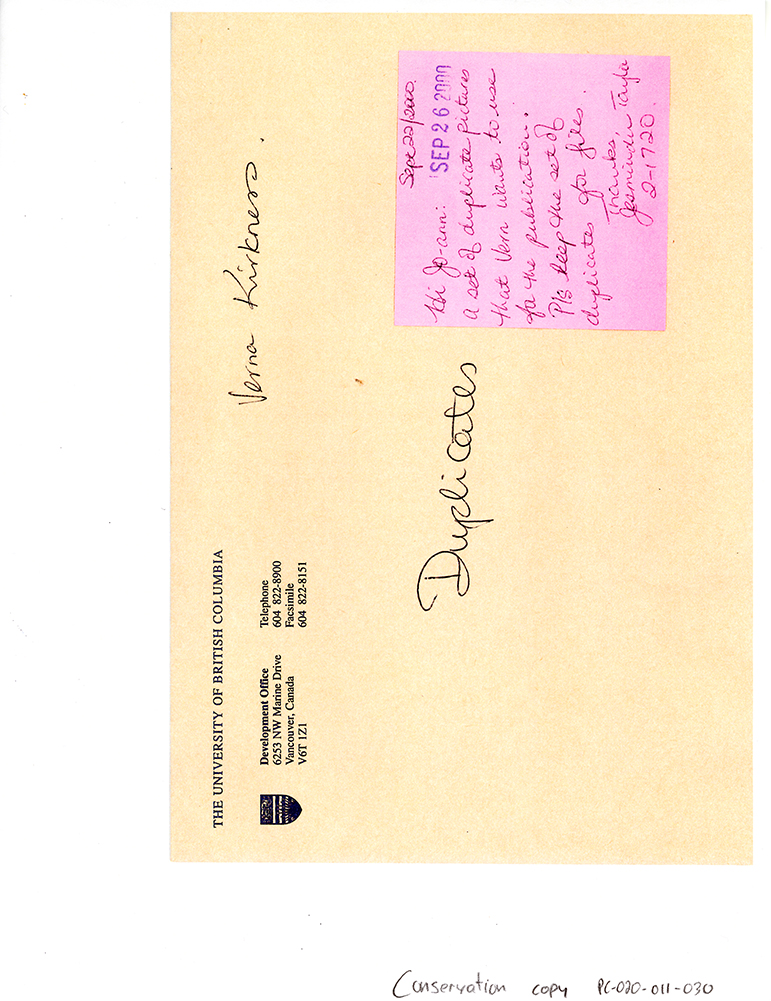 THE UNIVERSITY OF BRITISH COLUMBIA
Development Office
6253 NW Marine Drive
Vancouver, Canada
V6T 1Z1
Telephone
604 822-8900
Facsimile
604 822-8151
Verna Kirkness.
Duplicates
Sept 22/2000.
SEP 26 2000
Hi Jo-ann:
A set of duplicate pictures
that Vern wants to use
for the publication.
Pls keep the set of
duplicates for files.
Thanks,
Jasminder Taylor
2-1720.
Conservation copy PC-020-011-030